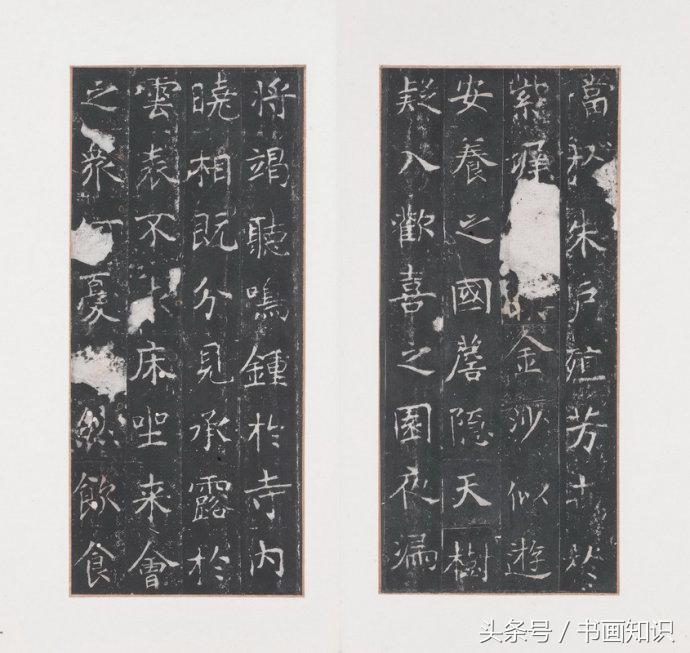 當朱戶殖芳於
紫墀金沙似遊
安養之國簷隱天樹
疑入歡喜之園夜漏
將竭聽鳴鍾於寺內
曉相既分見承露於
雲表不床坐来會
之衆何憂然飲食
头条号 / 书画知识